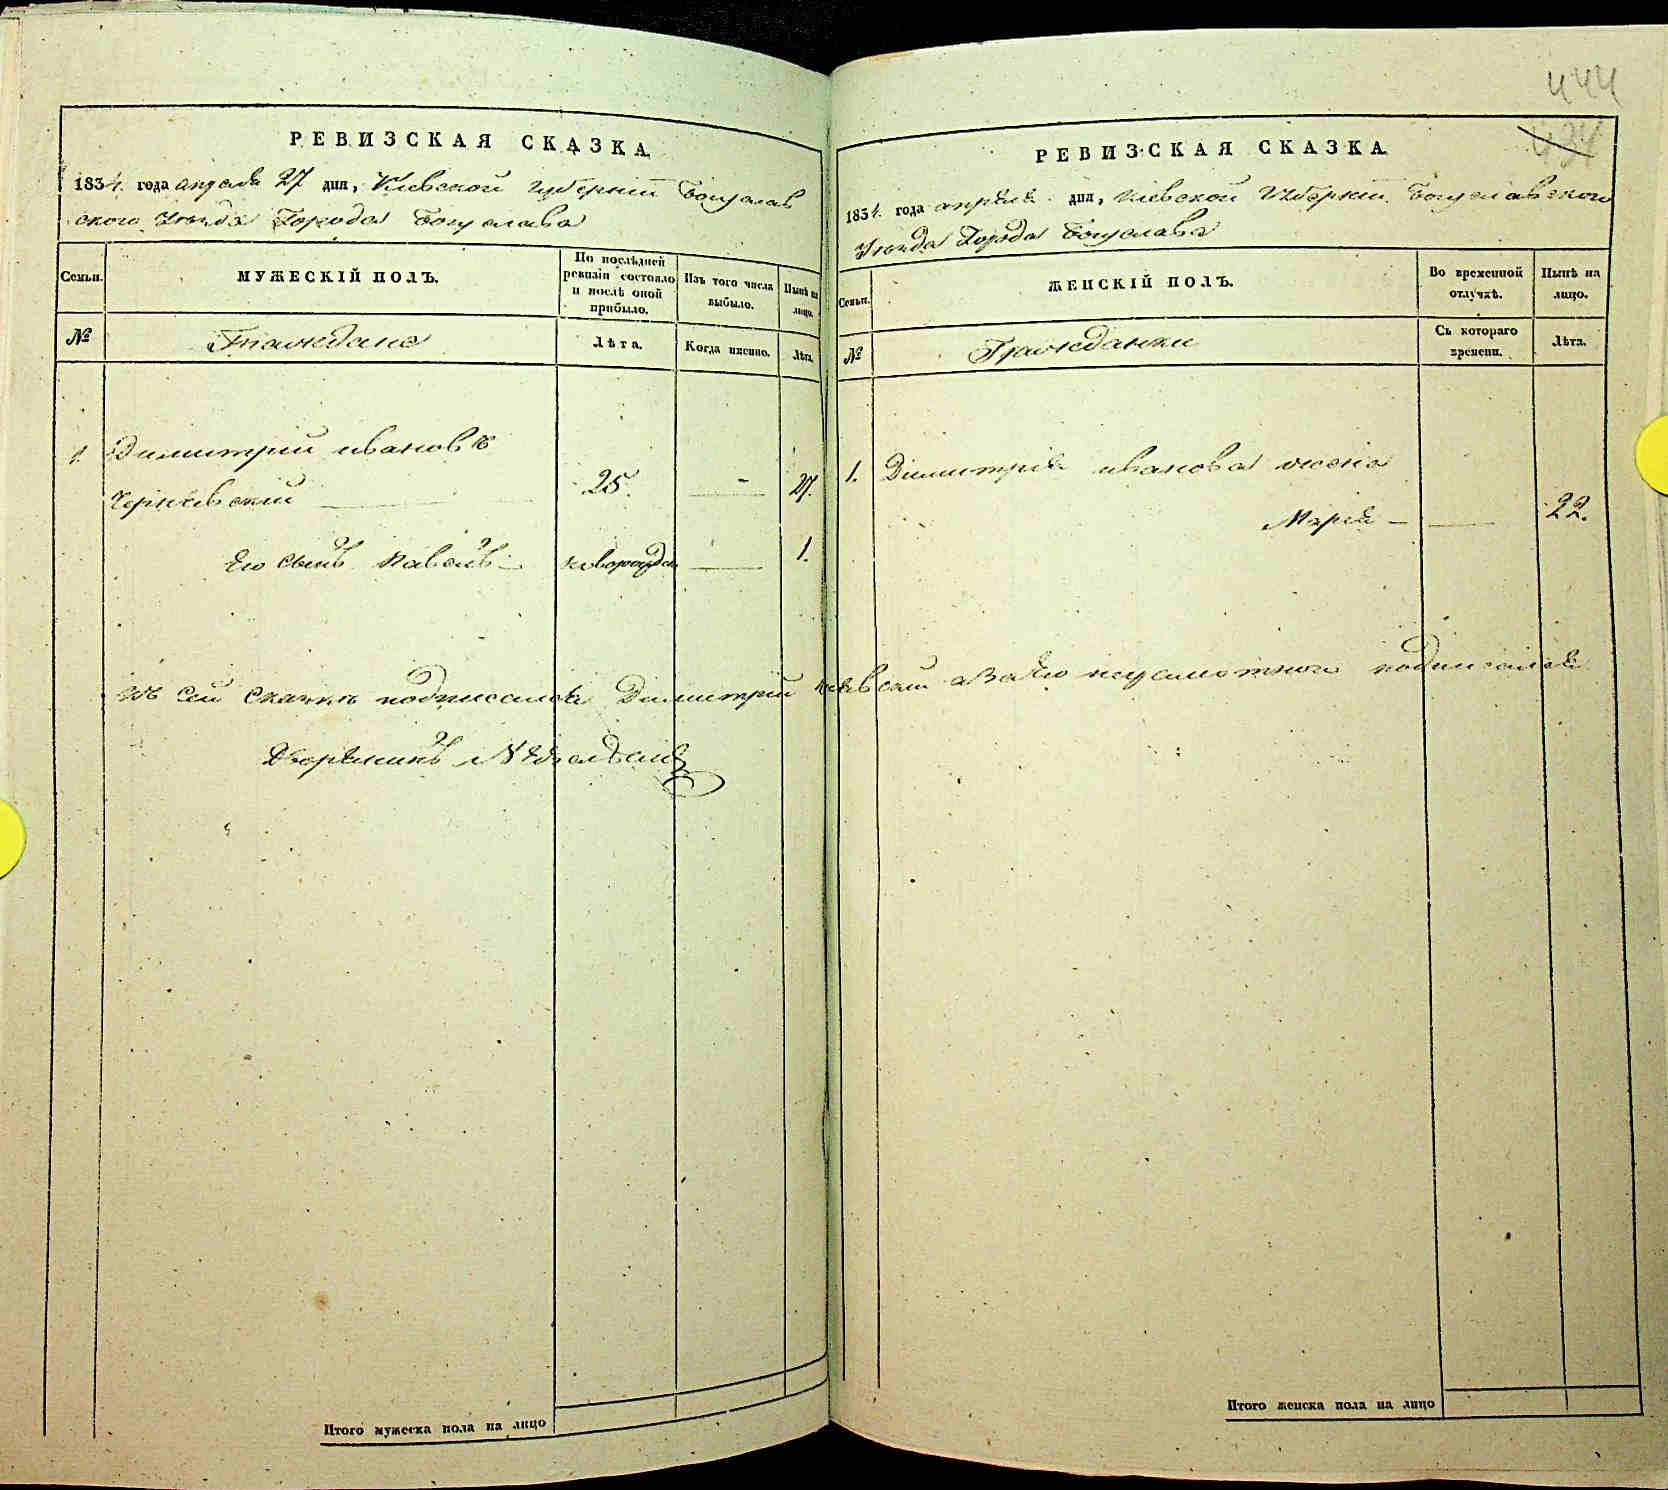 444
434
РЕВИЗСКАЯ СКАЗКА.
1834. года апреля 27 дня, Киевской губернїи Богуслав
ского Уезда Города Богуслава
Семьи.
МУЖЕСКІЙ ПОЛЪ.
По послѣдней ревизіи состояло и послѣ оной прибыло.
Изъ того числа выбыло.
Нынѣ на лицо.
№
Граждане
Лѣта.
Когда именно.
Лѣта.
1. Димитрий иванов
25. — 27.
Его сынъ Павелъ — новорожден — 1.
РЕВИЗСКАЯ СКАЗКА.
1834. года апреля дня, Киевской Губернїи Богуславского
Уезда Города Богуслава
Семьи.
ЖЕНСКІЙ ПОЛЪ.
Во временной отлучкѣ.
Нынѣ на лицо.
№
Гражданки
Съ котораго времени.
Лѣта.
1. Димитрия иванова жена
Мария — 22.
сей сказки подписался Димитрий неграмотного подписался
Дворянинъ
Итого мужеска пола на лицо
Итого женска пола на лицо